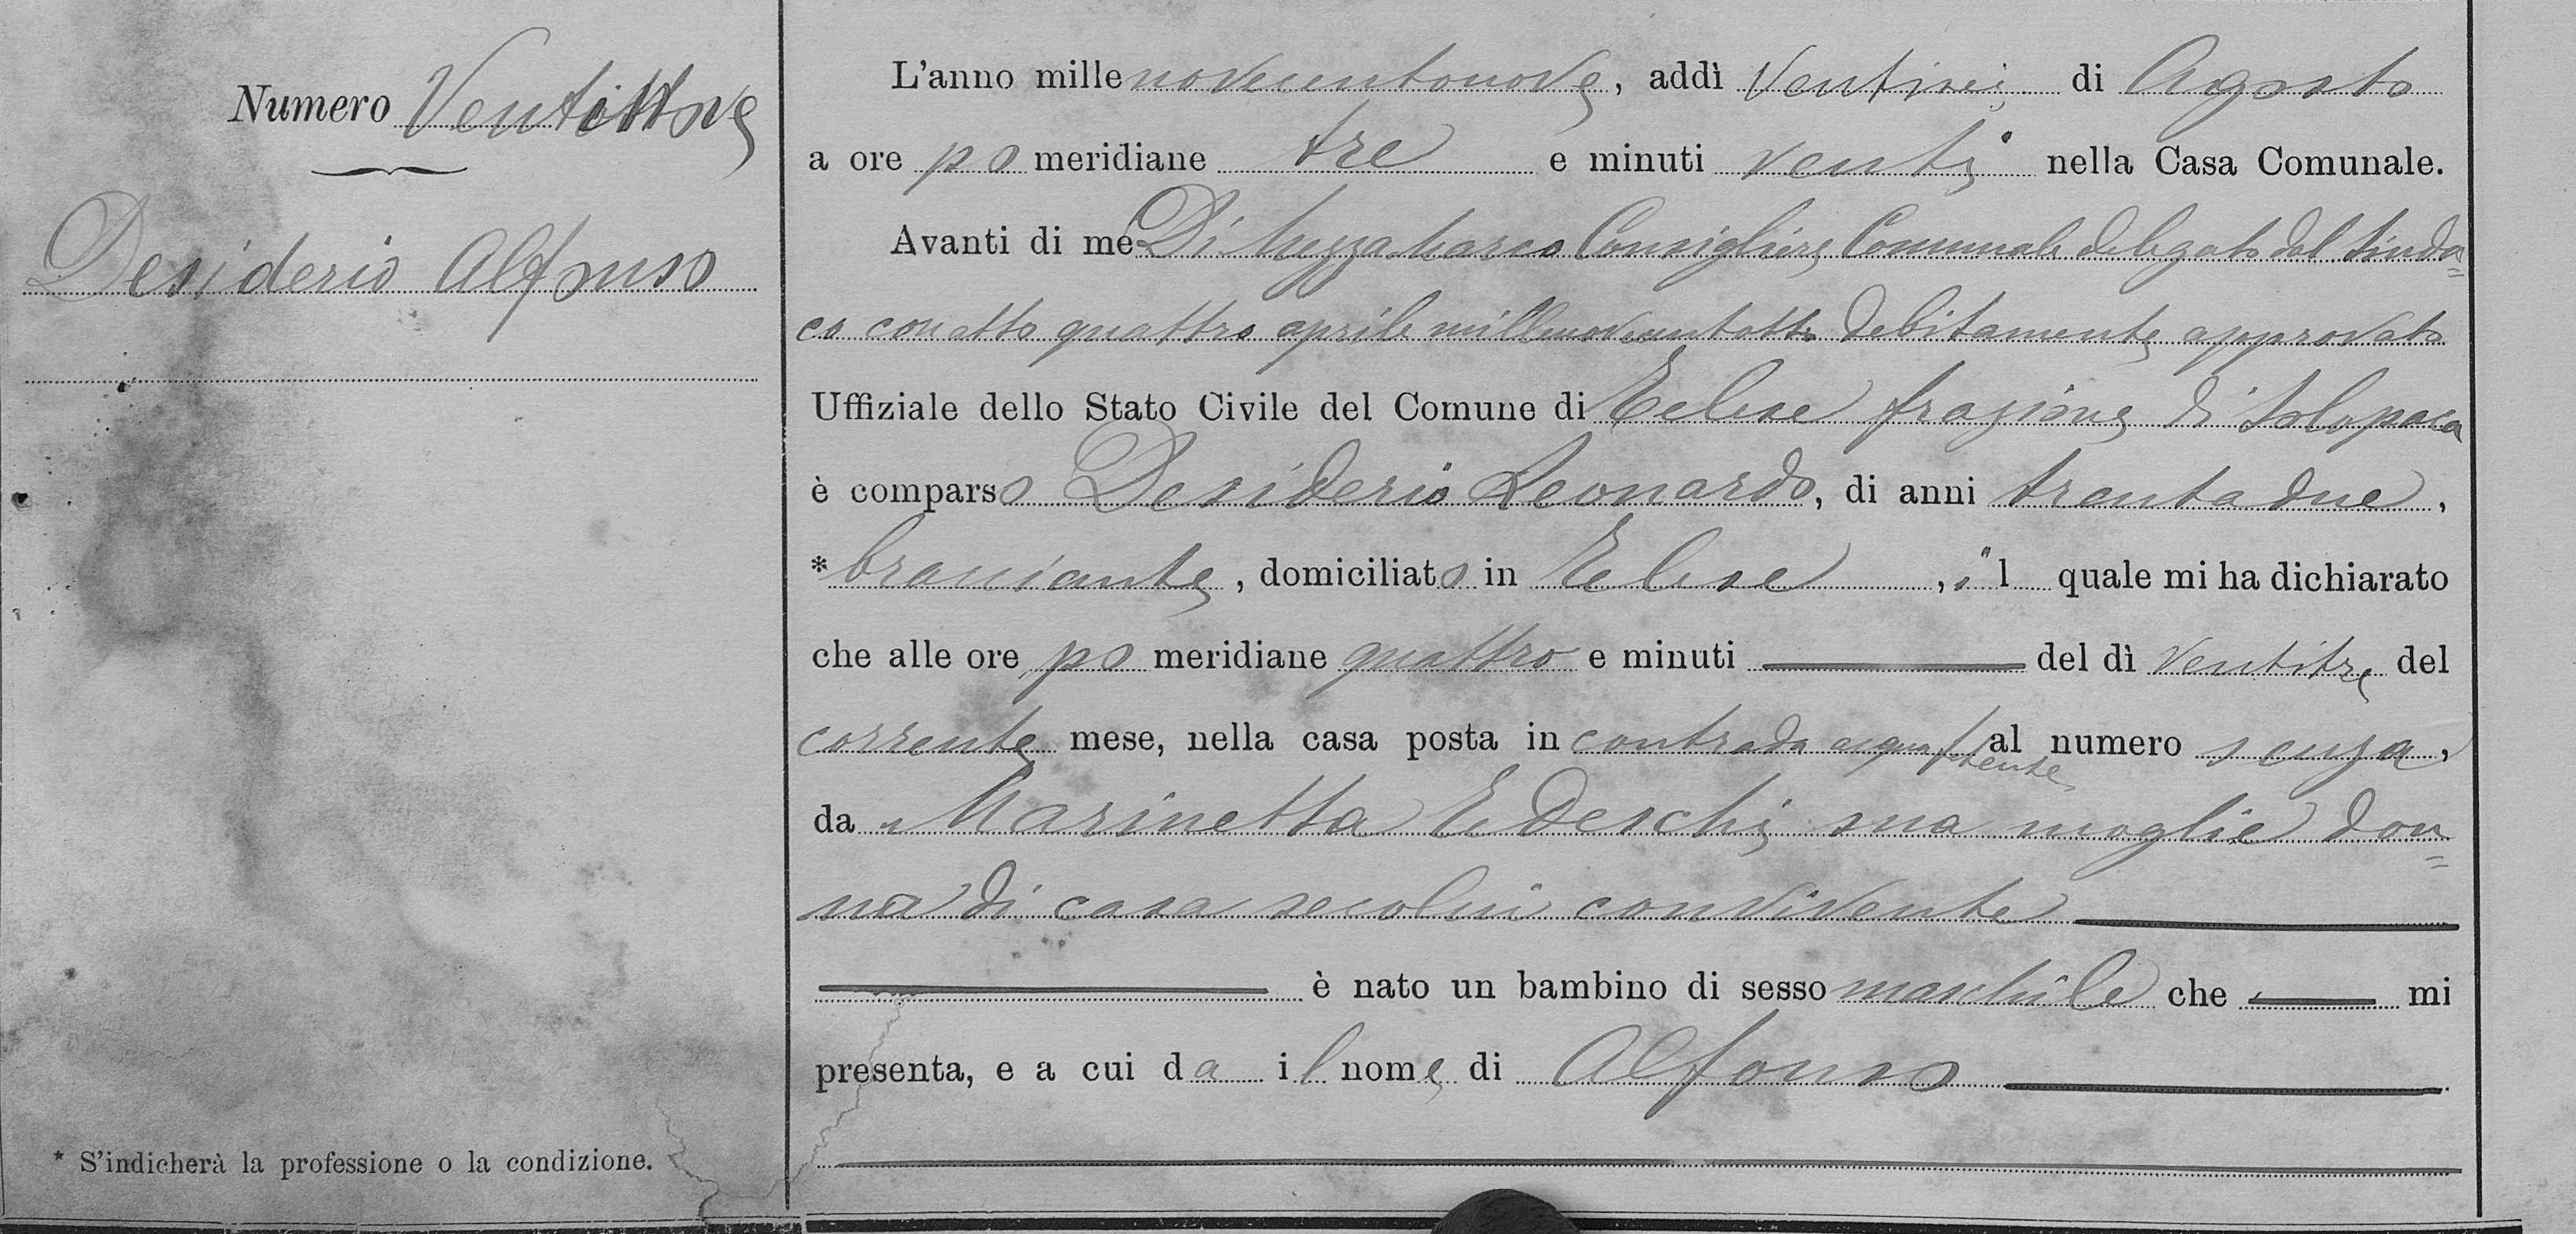 Numero Ventinove
Desiderio Alfonso
* S'indicherà la professione o la condizione.
L'anno millenovecentonove, addì Ventisei di Agosto
a ore pomeridiane tre e minuti venti nella Casa Comunale.
Avanti di me Di Mezza Marco Consigliere Comunale delegato dal Sinda=
co con atto quattro aprile millenovecentotto debitamente approvato
Uffiziale dello Stato Civile del Comune di Telese frazione di Solopaca
è comparso Desiderio Leonardo, di anni trentadue,
* bracciante, domiciliato in Telese, il quale mi ha dichiarato
che alle ore pomeridiane quattro e minuti del dì ventitre del
corrente mese, nella casa posta in contrada acqua fetente al numero senza,
da Marinetta Edeschi sua moglie don=
na di casa secolui convivente
è nato un bambino di sesso maschile che mi
presenta, e a cui da il nome di Alfonso